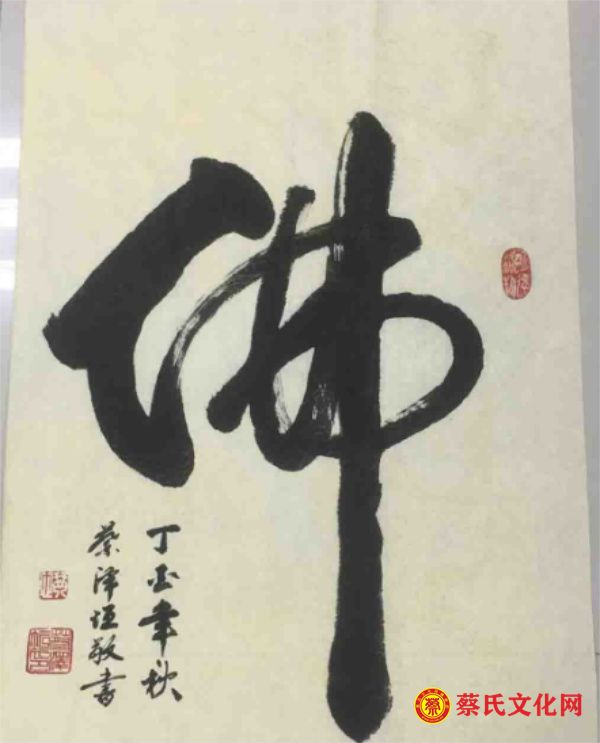 佛
丁酉年秋
蔡泽恒敬書
蔡氏文化网